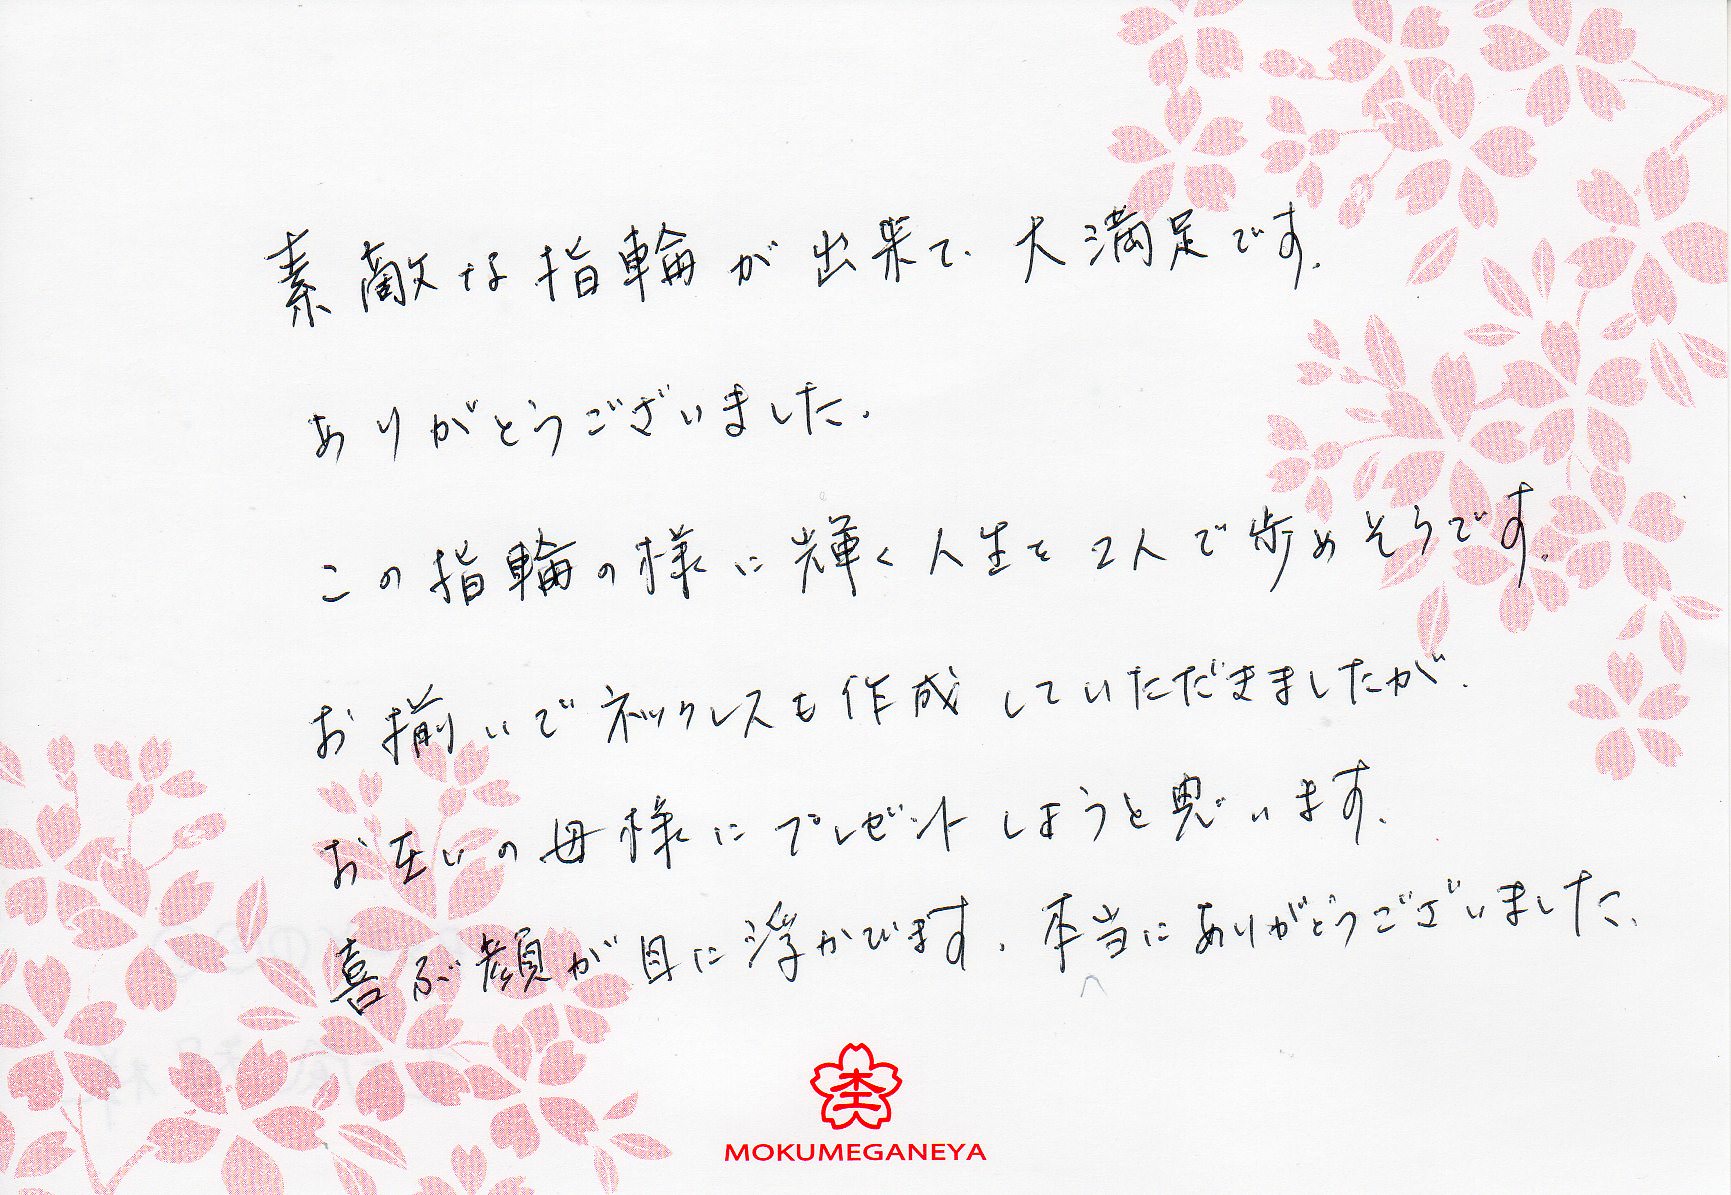 素敵な指輪が出来て、大満足です。
ありがとうございました。
この指輪の様に輝く人生を2人で歩めそうです。
お揃いでネックレスも作成していただきましたが、
お互いの母様にプレゼントしようと思います。
喜ぶ顔が目に浮かびます。本当にありがとうございました。
MOKUMEGANEYA